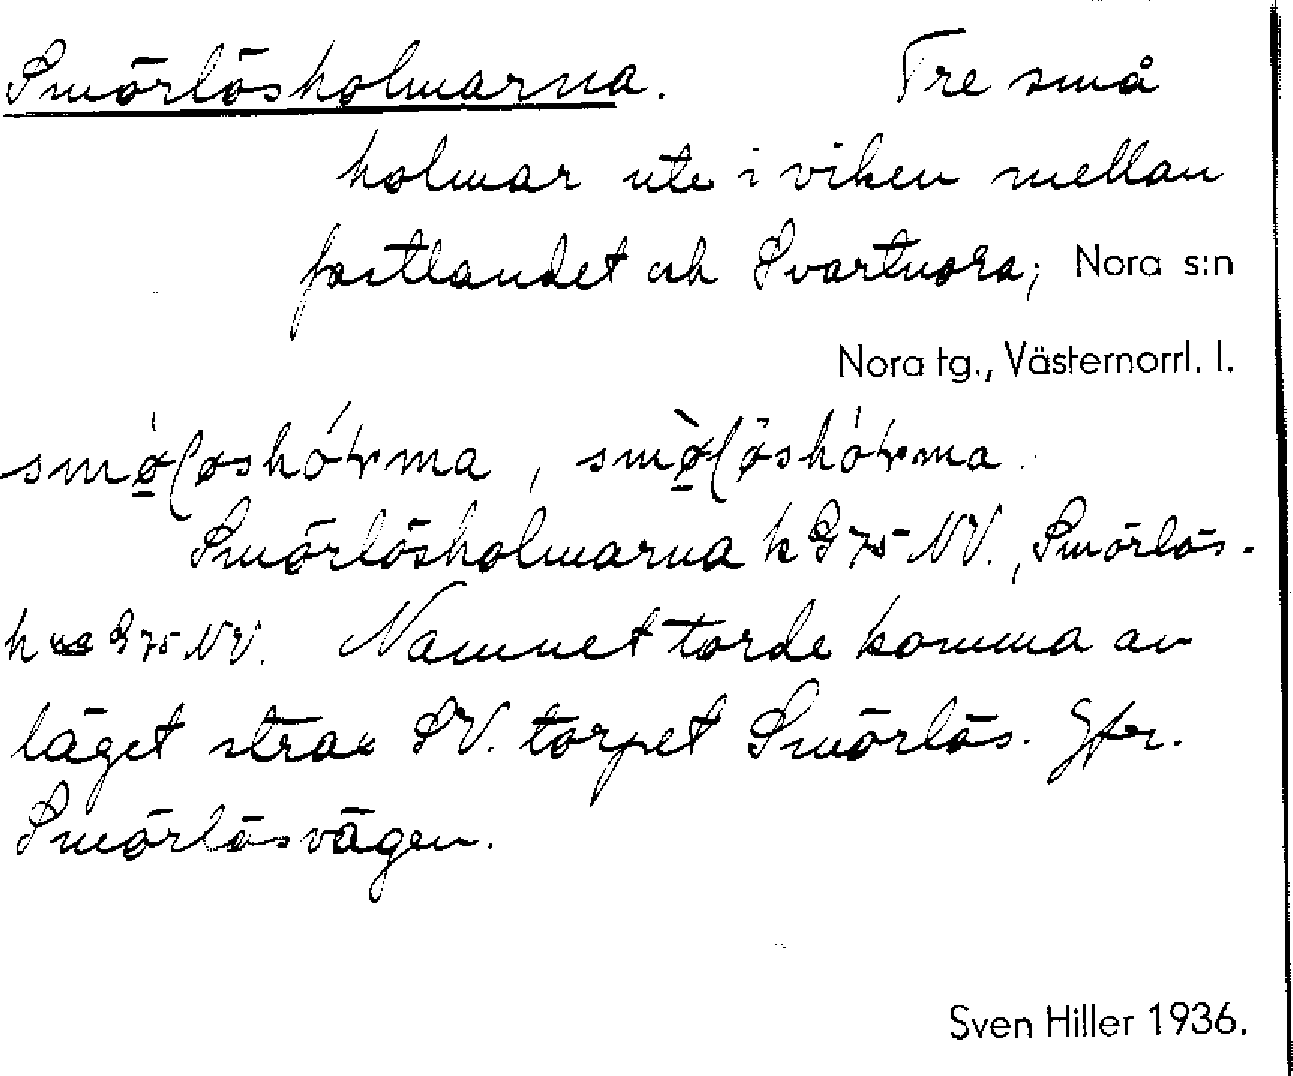 Smörlösholmarna. Tre små
holmar ute i viken mellan
fastlandet och Svartnora; Nora s:n
Nora tg., Västernorrl. l.
Smörlösholmarna k G 75 NV., Smörlös-
h G 75 NV. Namnet torde komma av
läget strax SV. torpet Smörlös. Jfr.
Smörlösvägen.
Sven Hiller 1936.